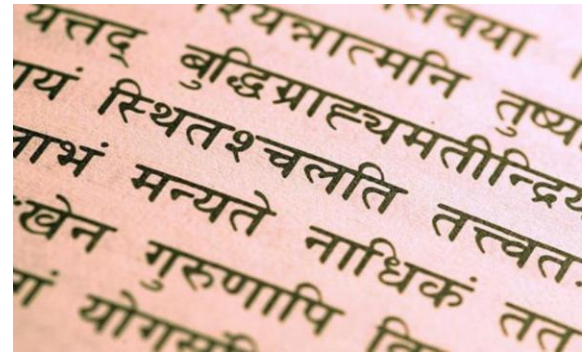 श्यन्नात्मनि तुष्य
यत्तद् बुद्धिग्राह्यमतीन्द्रिय
ायं स्थितश्चलति तत्त्वत
लाभं मन्यते नाधिकं तत
ःखेन गुरुणापि वि
गं